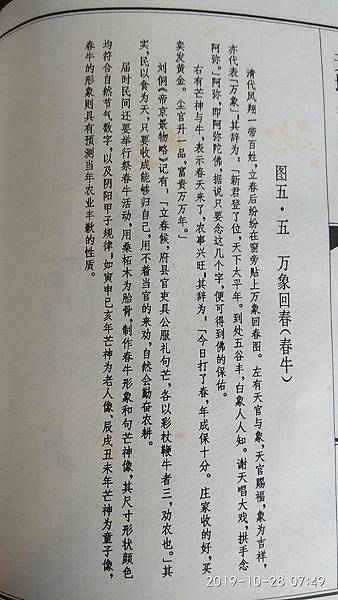 图五·五 万象回春(春牛)
清代凤翔一带百姓，立春后纷纷在窗旁贴上万象回春图。左有天官与象，天官赐福，象为吉祥，
亦代表「万象」，其辞为，「新君登了位，天下太平年。到处五谷丰，白象人人知。谢天唱大戏，拱手念
阿弥。」阿弥，即阿弥陀佛，据说只要念这几个字，便可得到佛的保佑。
右有芒神与牛，表示春天来了，农事兴旺，其辞为，「今日打了春，年成保十分。庄家收的好，买
卖发黄金。尘官升一品，富贵万万年。」
刘侗《帝京景物略》记有，「立春侯，府县官吏具公服礼句芒，各以彩杖鞭牛者三，劝农也。」其
实，民以食为天，只要收成能够归自己，用不着当官的来劝，自然会勤奋农耕。
届时民间还要举行祭春牛活动，用桑柘木为胎骨，制作春牛形象和句芒神像，其尺寸形状颜色
均符合自然节气数字，以及阴阳甲子规律，如寅申巳亥年芒神为老人像、辰戌丑未年芒神为童子像，
春牛的形象则具有预测当年农业丰歉的性质。
2019-10-28 07:49